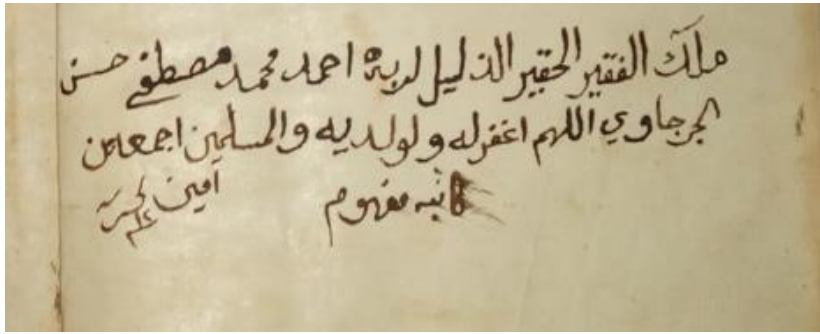 ملك الفقير الحقير الذليل لربه احمد محمد مصطفى حسن
الجرجاوي اللهم اغفر له ولولديه والمسلمين اجمعين
مفهوم امين